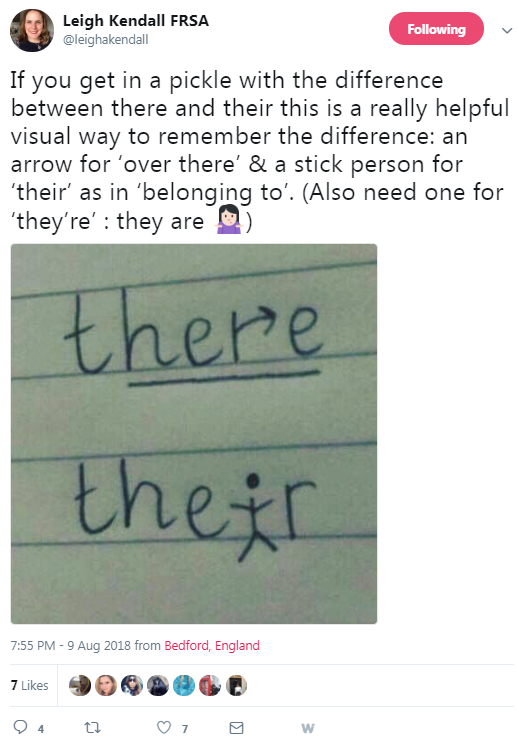 Leigh Kendall FRSA
@leighakendall
Following
If you get in a pickle with the difference
between there and their this is a really helpful
visual way to remember the difference: an
arrow for ‘over there’ & a stick person for
‘their’ as in ‘belonging to’. (Also need one for
‘they’re’ : they are 🤷🏻‍♀️)
there
their
7:55 PM - 9 Aug 2018 from Bedford, England
7 Likes
4 7 W